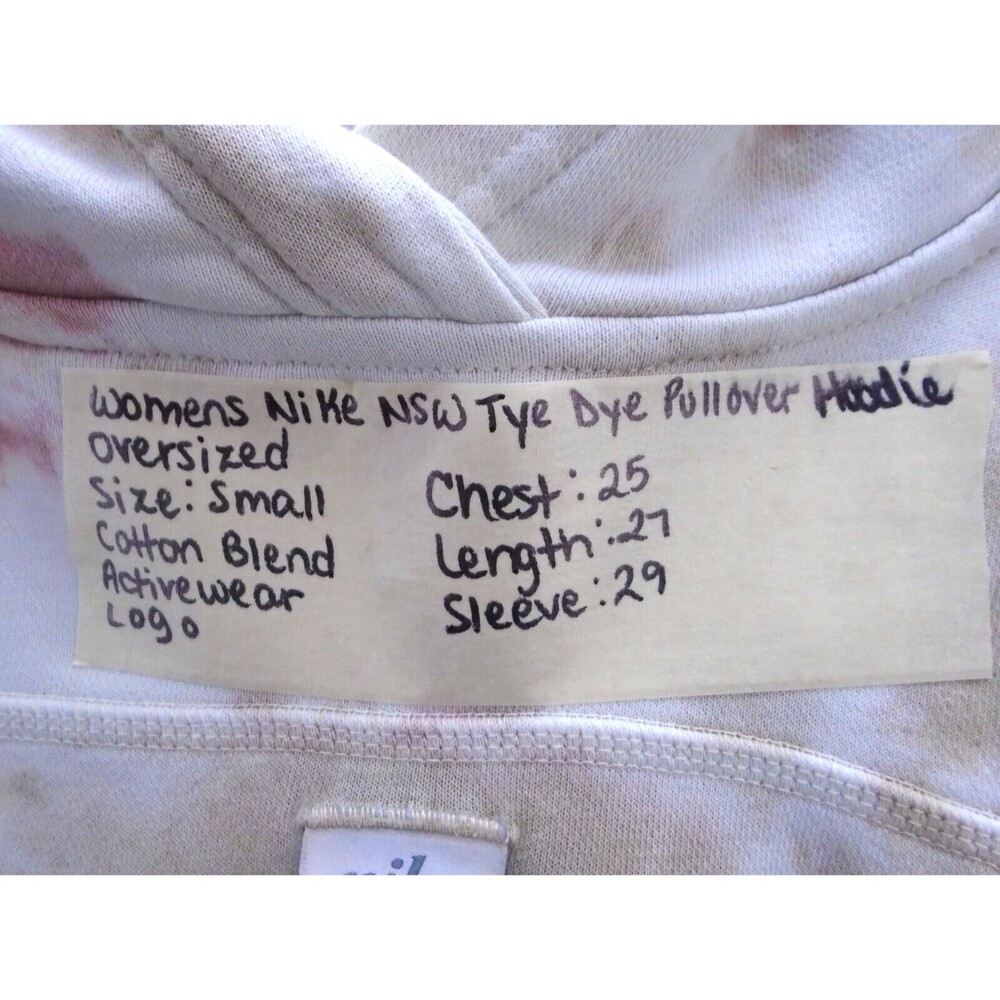 Womens Nike NSW Tye Dye Pullover Hoodie
oversized
Size: Small
Cotton Blend
Activewear
Logo
Chest: 25
Length: 27
Sleeve: 29